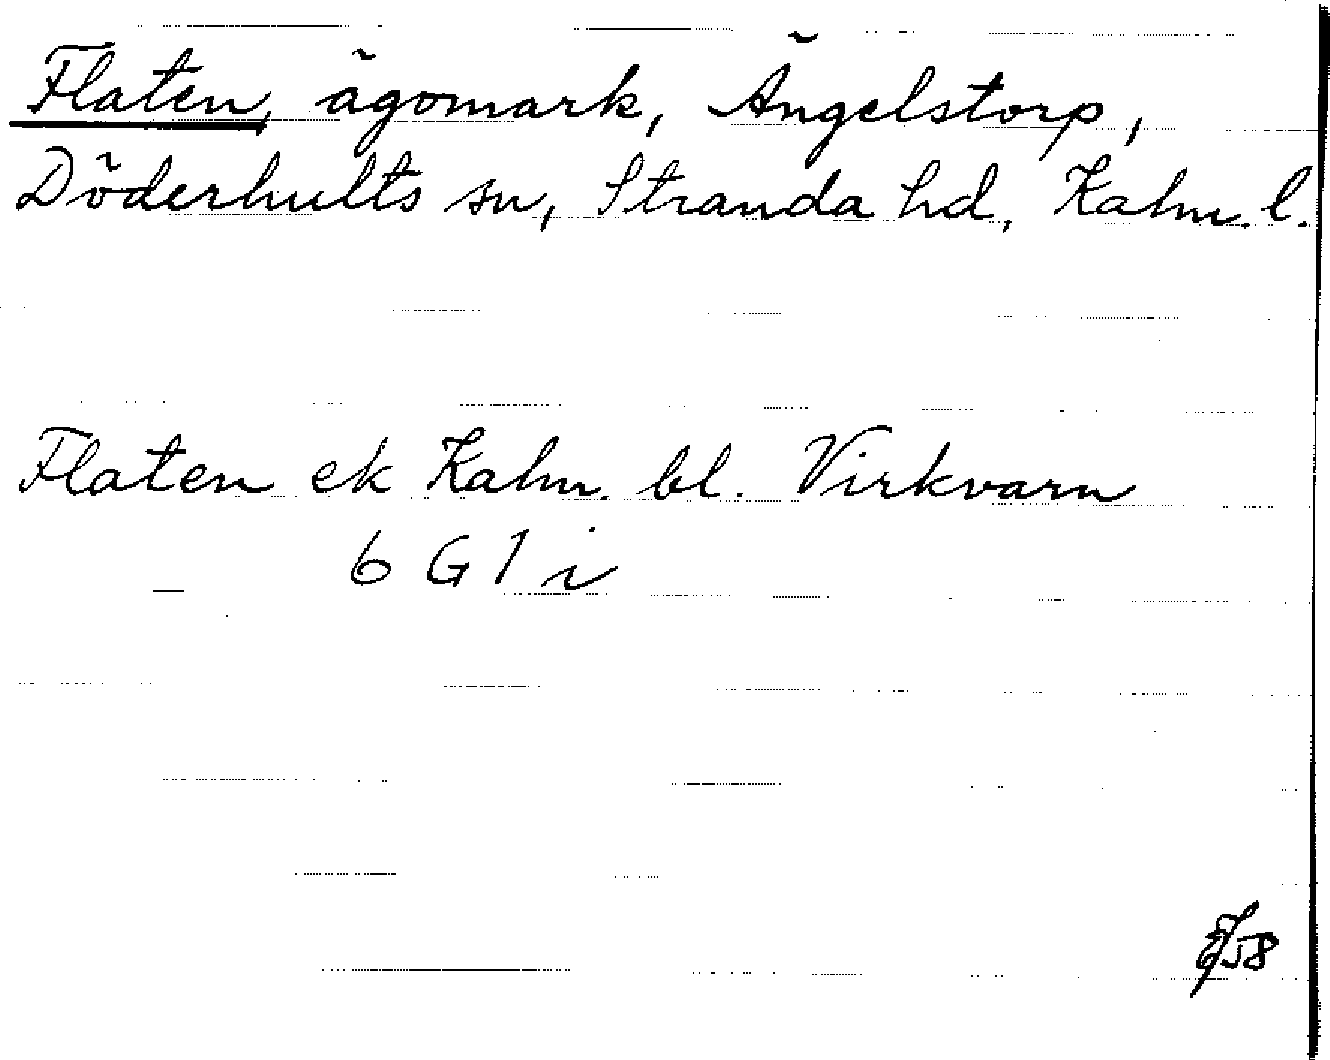 Flaten, ägomark, Ängelstorp,
Döderhults sn, Stranda hd, Kalm. l.
Flaten ek Kalm. bl. Virkvarn
6 G 1 i
58